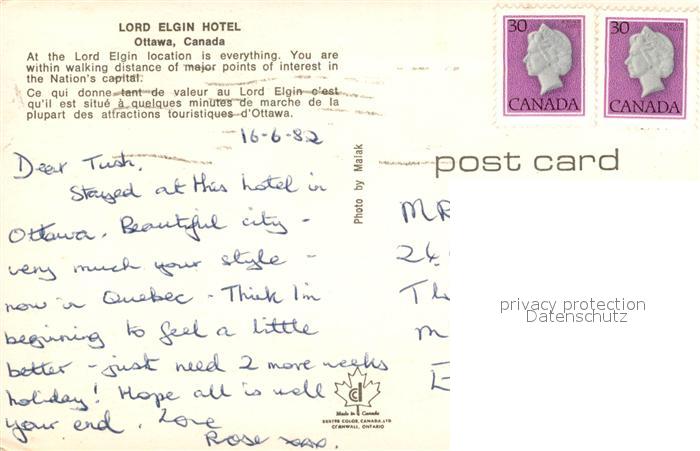 LORD ELGIN HOTEL
Ottawa, Canada
At the Lord Elgin location is everything. You are
within walking distance of major points of interest in
the Nation's capital.
Ce qui donne tant de valeur au Lord Elgin c'est
qu'il est situé à quelques minutes de marche de la
plupart des attractions touristiques d'Ottawa.
16-6-82
Dear Tush,
Stayed at this hotel in
Ottawa. Beautiful city -
very much your style -
now in Quebec - Think I'm
beginning to feel a little
better - just need 2 more weeks
holiday! Hope all is well
your end. Love
Rose xxx.
Photo by Malak
Made in Canada
DEXTER COLOR, CANADA, LTD.
CORNWALL, ONTARIO
30
CANADA
30
CANADA
post card
MR
24
Th
M
E
privacy protection
Datenschutz